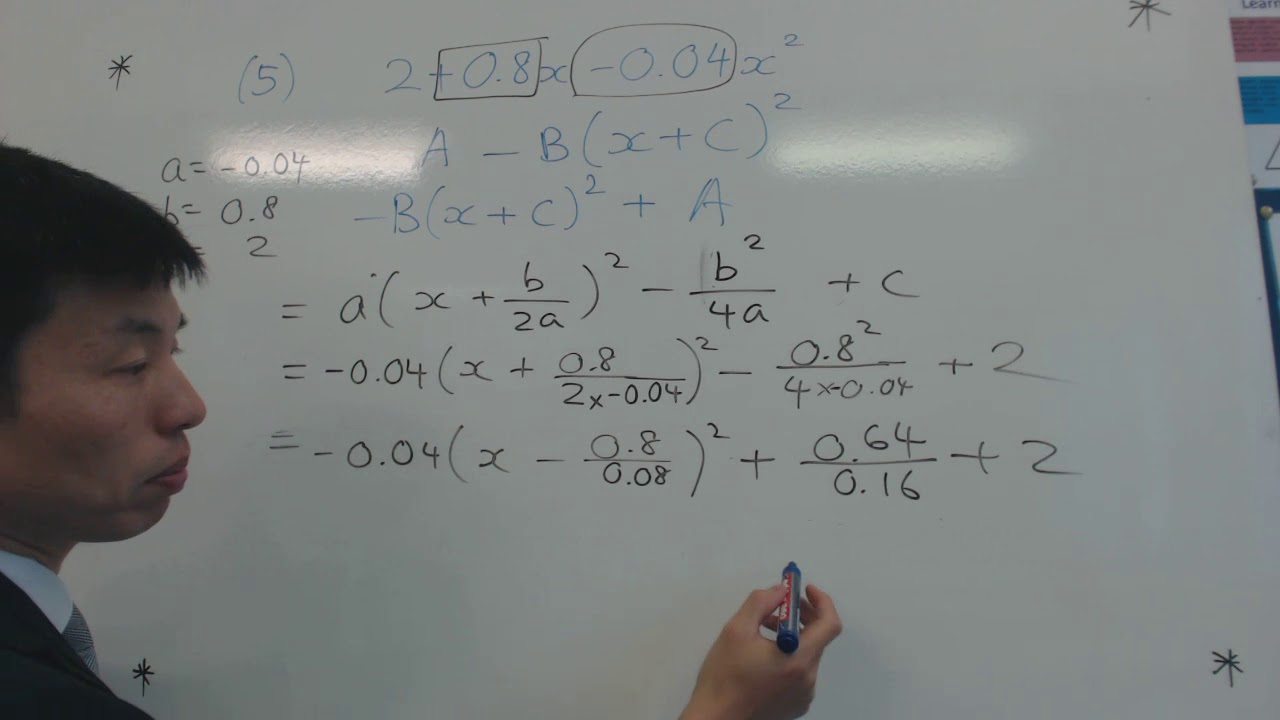 Learn
(5) 2+0.8x-0.04x²
A - B(x+C)²
a = -0.04
b = 0.8
-B(x+C)² + A
= 2
= a(x + b/2a)² - b²/4a + c
= -0.04(x + 0.8/2×-0.04)² - 0.8²/4×-0.04 + 2
= -0.04(x - 0.8/0.08)² + 0.64/0.16 + 2